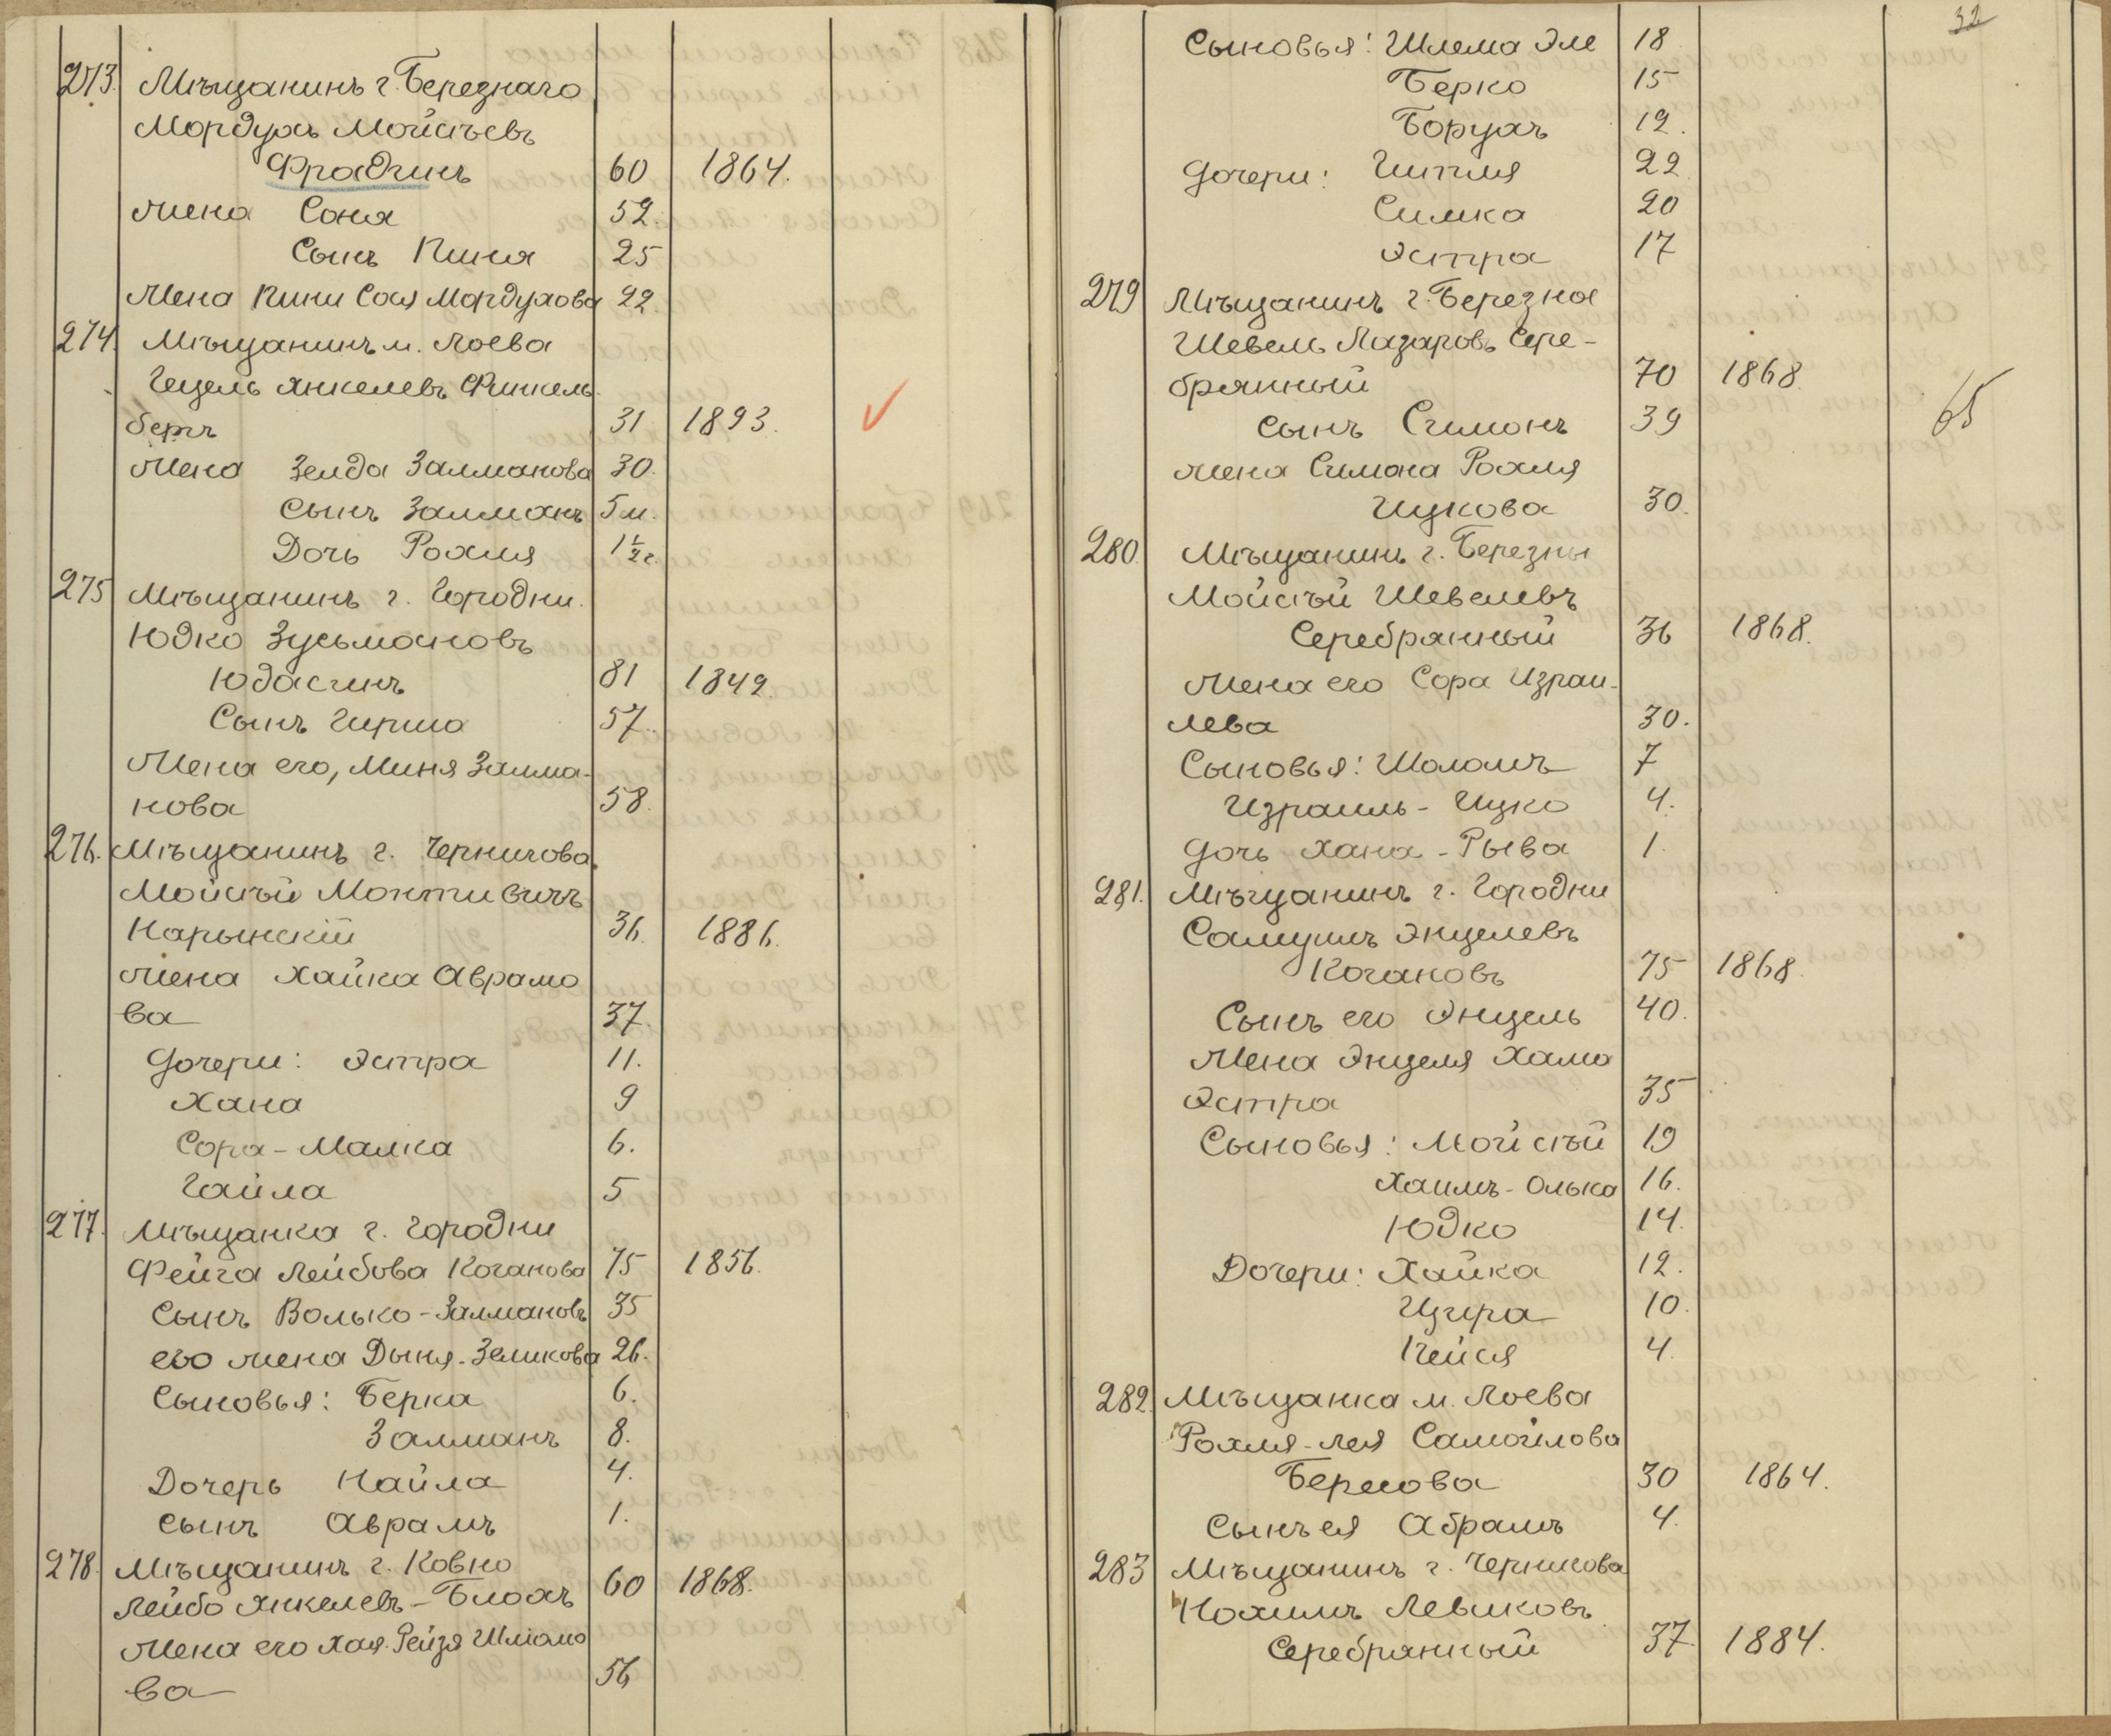 273. Мѣщанинъ г. Березнаго
Мордухъ Мойсѣевъ
Фрадкинъ 60 1864.
Жена Соня 52.
Сынъ Пиня 25
Жена Пини Соя Мордухова 22.
274. Мѣщанинъ м. Лоева
Гецель Янкелевъ Финкель-
бергъ 31 1893.
Жена Зелда Залманова 30.
Сынъ Залманъ 5 м.
Дочь Рохля 1 1/2 г.
275 Мѣщанинъ г. Городни.
Юдко Зусьмановъ
Юдасинъ 81 1849.
Сынъ Гирша 57.
Жена его, Миня Залма-
нова 58.
276. Мѣщанинъ г. Чернигова
Мойсѣй Монтивичъ
Нарынскій 36. 1886.
Жена Хайка Аврамо
ва 37.
Дочери: Эстра 11.
Хана 9
Сора-Малка 6.
Гайла 5
277. Мѣщанка г. Городни
Фейга Лейбова Коганова 75 1856.
Сынъ Волько-Залмановъ 35
его жена Дыня-Зеликова 26.
Сыновья: Берка 6.
Залманъ 8.
Дочерь Найла 4.
Сынъ Аврамъ 1.
278. Мѣщанинъ г. Ковно
Лейбо Янкелевъ-Блохъ 60 1868.
Жена его Хая-Рейзя Шліомо
ва 56
32
Сыновья: Шлема Эле 18
Берко 15
Борухъ 12.
Дочери: Гитля 22
Симка 20
Эстра 17
279 Мѣщанинъ г. Березное
Шевель Лазаровъ Сере-
брянный 70 1868.
65
Сынъ Симонъ 39
Жена Симона Рохля
Ицкова 30.
280. Мѣщанинъ г. Березны
Мойсѣй Шевелевъ
Серебрянный 36 1868.
Жена его Сора Израи-
лева 30.
Сыновья: Шоломъ 7
Израиль-Ицко 4.
Дочь Хана-Рыва 1.
281. Мѣщанинъ г. Городни
Самуилъ Энцелевъ
Когановъ 75 1868.
Сынъ его Энцель 40.
Жена Энцеля Хама
Эстра 35
Сыновья: Мойсѣй 19
Хаимъ-Олька 16.
Юдко 14.
Дочери: Хайка 12.
Цира 10.
Кейля 4.
282. Мѣщанка м. Лоева
Рохля-Лея Самойлова
Бересова 30 1864.
Сынъ ея Абрамъ 4.
283 Мѣщанинъ г. Чернигова
Нохимъ Левиковъ
Серебрянный 37. 1884.